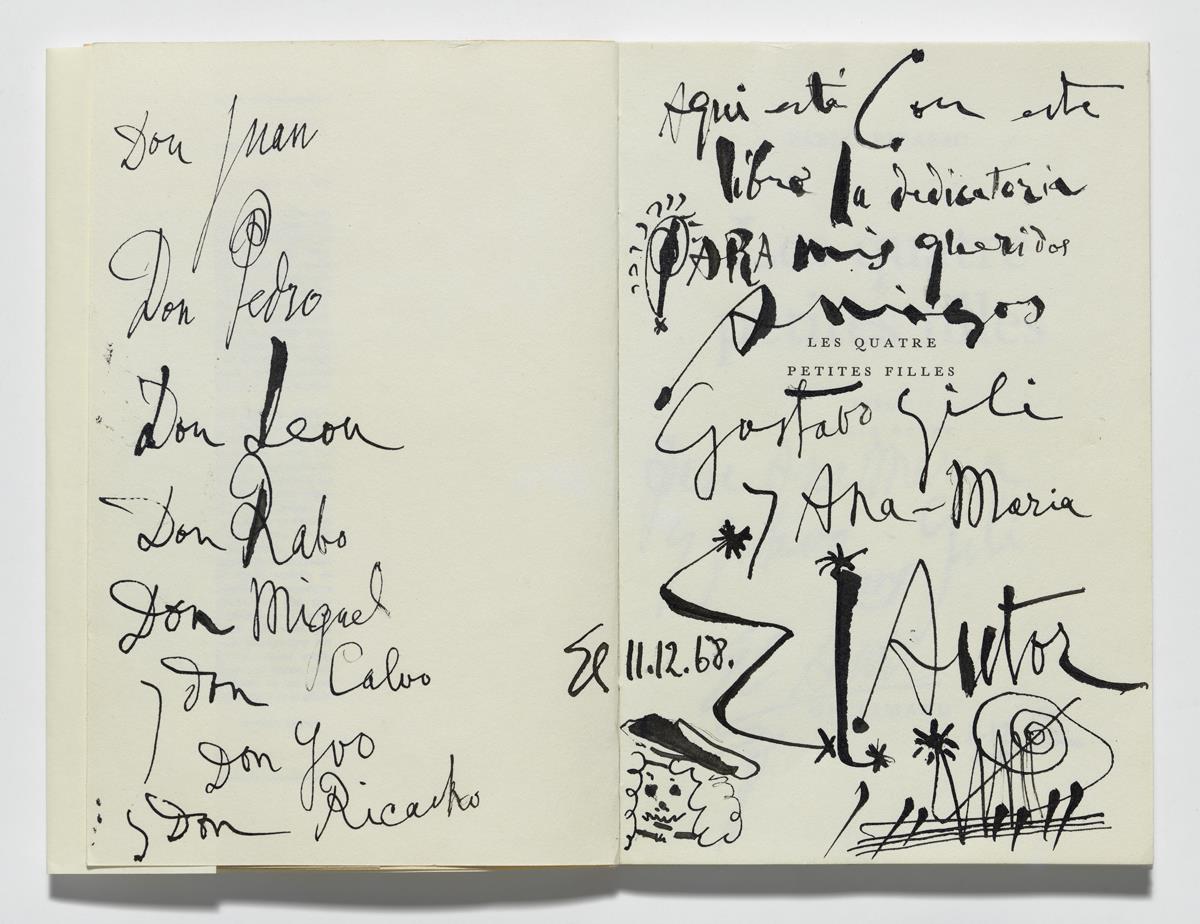 Don Juan
Don Pedro
Don Leon
Don Rabo
Don Miguel
y Don Calvo
Don Yvo
y Don Ricardo
Aqui está Con este
libro la dedicatoria
PARA mis queridos
Amigos
LES QUATRE
PETITES FILLES
Gustabo Gili
y Ana-Maria
El Autor
El 11.12.68.